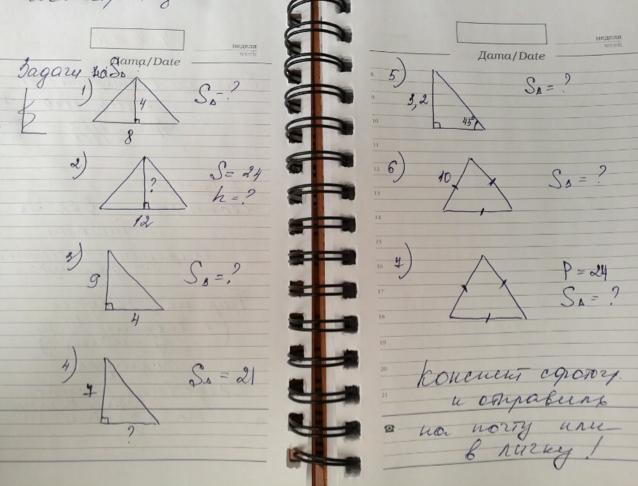 Дата/Date
неделя
week
Задачи на S∆
1)
4
8
S∆ = ?
2)
?
12
S = 24
h = ?
3)
9
4
S∆ = ?
4)
7
?
S∆ = 21
Дата/Date
неделя
week
5)
3,2
45°
S∆ = ?
6)
10
S∆ = ?
7)
P = 24
S∆ = ?
Конспект сфотогр.
и отправить
на почту или
в личку!